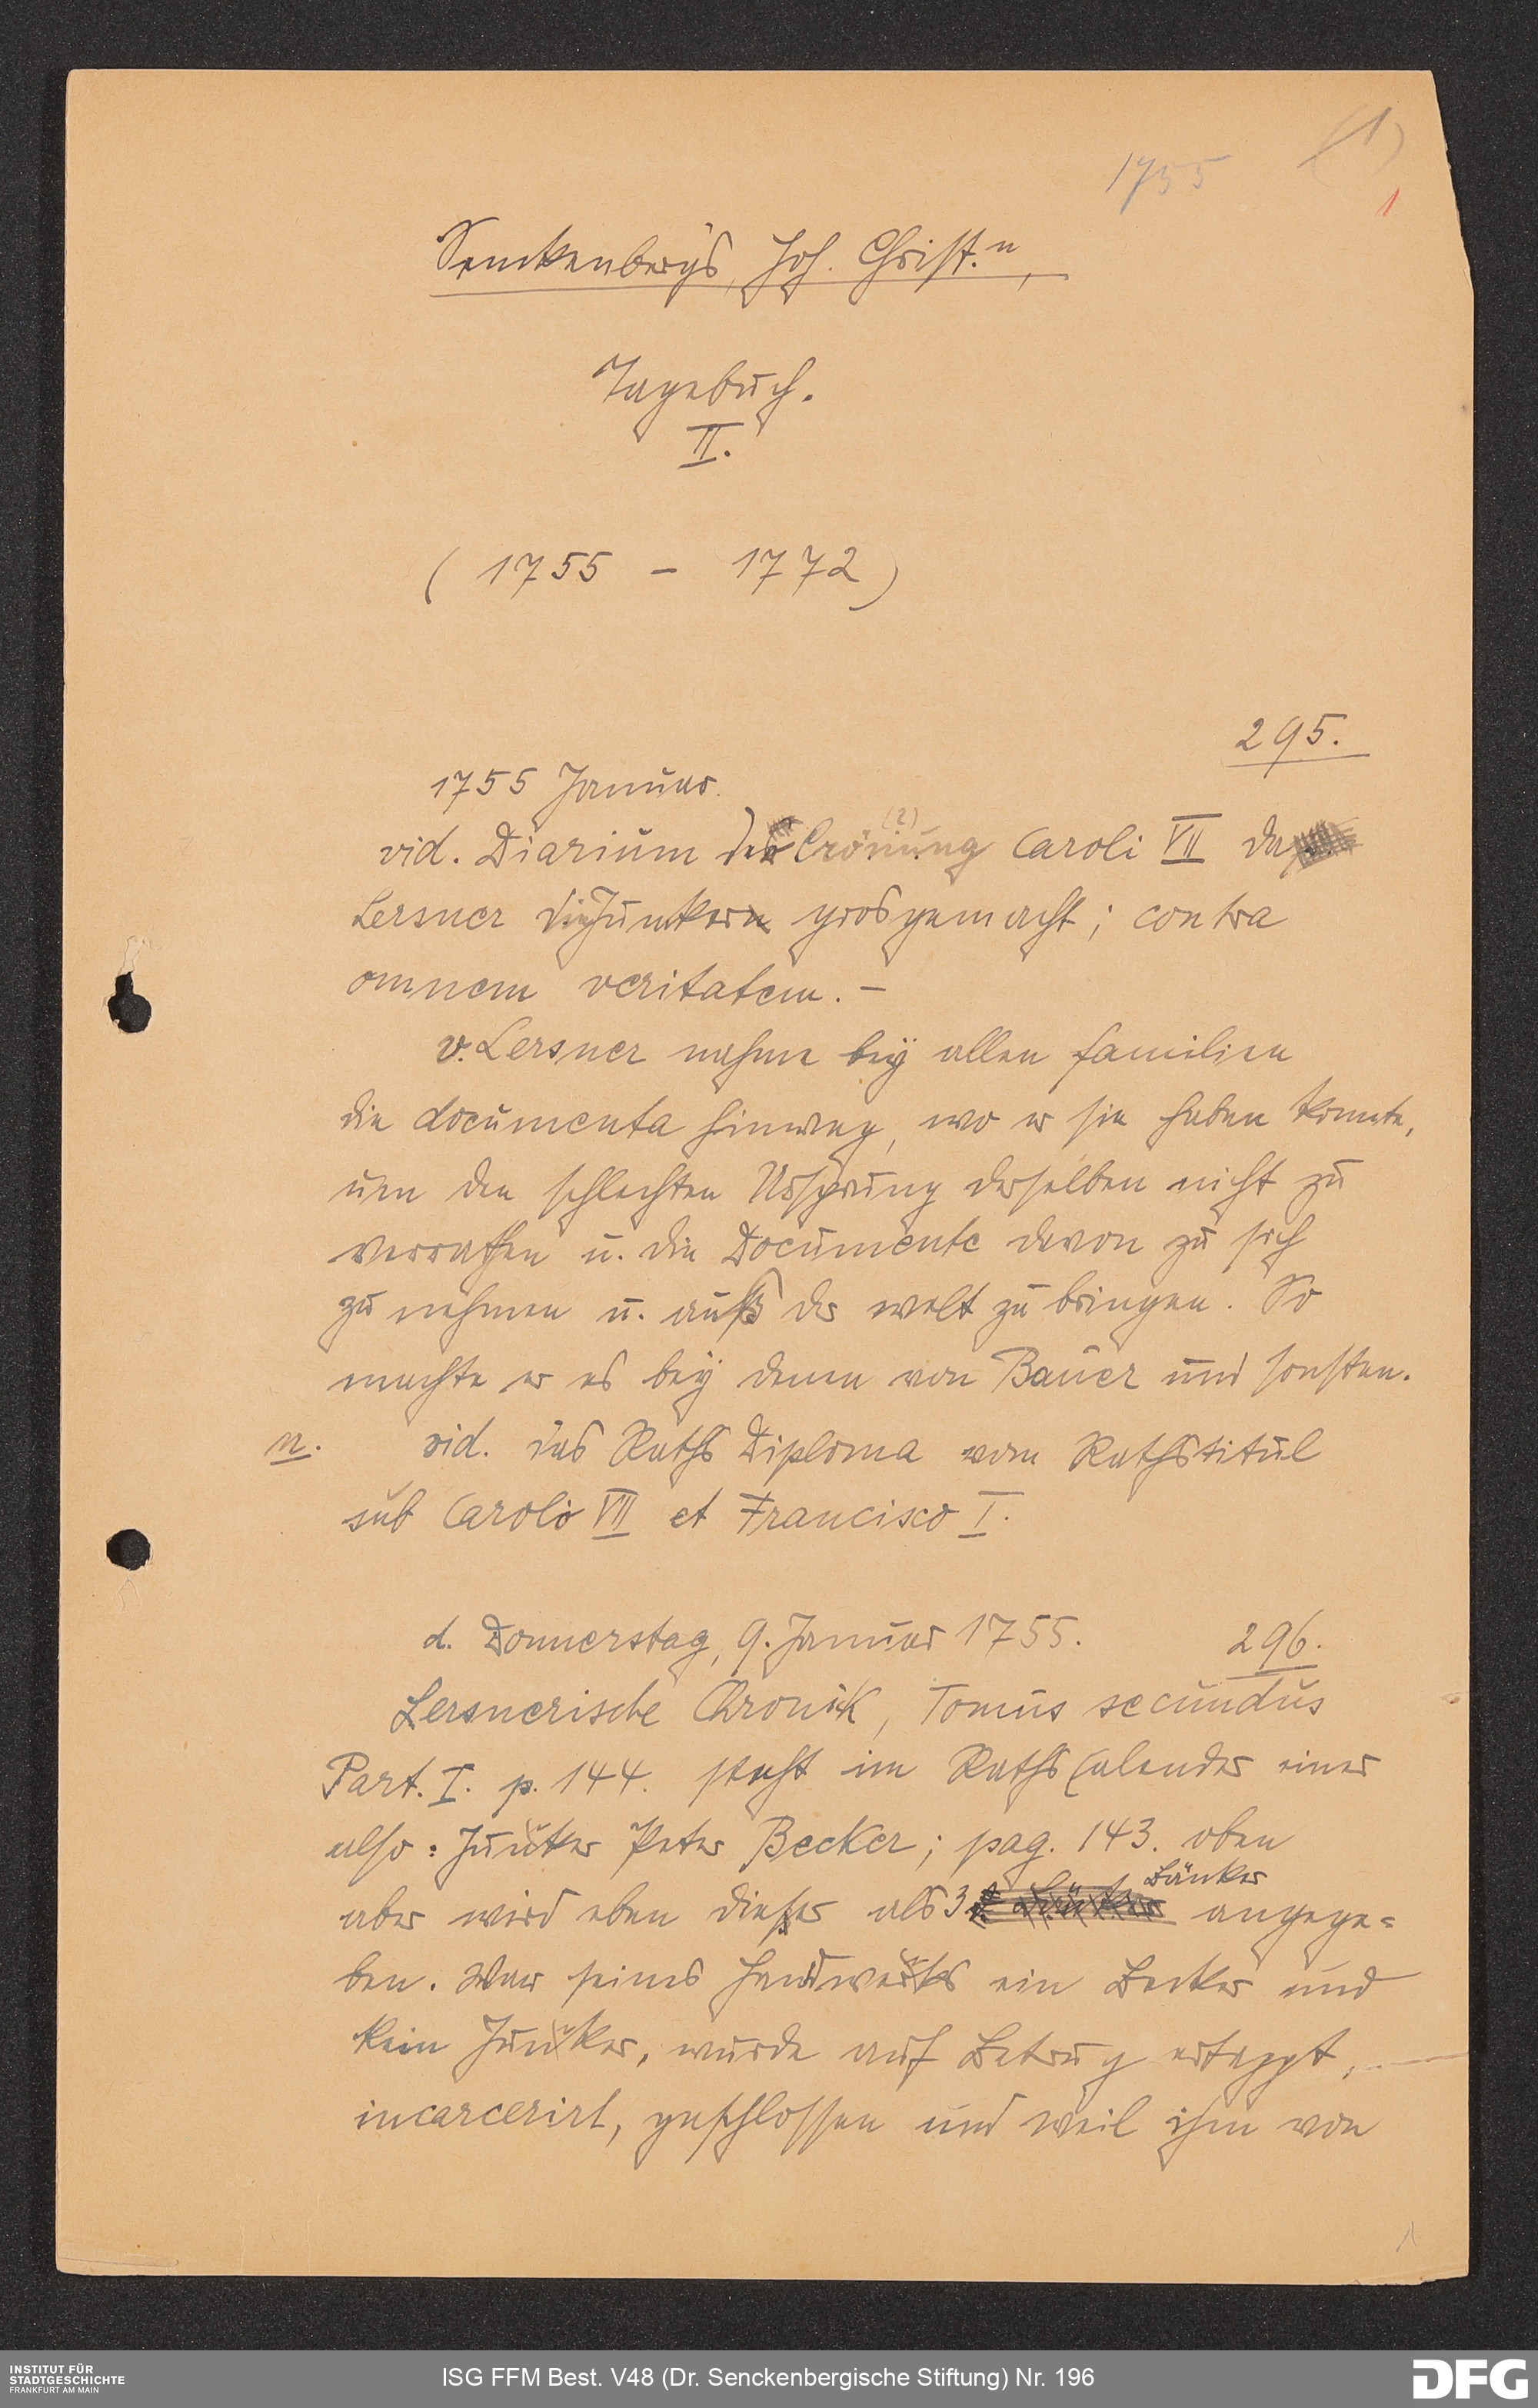 (1)
1755
1
Senckenbergs, Joh. Christ.n,
Tagebuch.
II.
(1755 - 1772)
295.
1755 Januar.
(?)
vid. Diarium der Crönung Caroli VII da
Lersner die Junkern grosgemacht; contra
omnem veritatem. -
v. Lersner nahme bey allen familien
die documenta hinweg, wo er sie haben konnte,
um den schlechten Ursprung derselben nicht zu
verrathen u. die Documente davon zu sich
zu nehmen u. auß der welt zu bringen. So
machte er es bey denen von Bauer und sonsten.
n. vid. das Raths Diploma vom Rathstitul
sub Carolo VII et Francisco I.
d. Donnerstag, 9. Januar 1755. 296.
Lersnerische Chronik, Tomus secundus
Part. I. p. 144. steht im Raths Calender einer
also: Junker Peter Becker; pag. 143. oben
Bänker
aber wird eben dießer als 3 angege=
ben. War seines Handwerks ein Becker und
kein Junker, wurde auf Betrug ertappt,
incarcerirt, geschlossen und weil ihm von
1
INSTITUT FÜR
STADTGESCHICHTE
FRANKFURT AM MAIN
ISG FFM Best. V48 (Dr. Senckenbergische Stiftung) Nr. 196
DFG